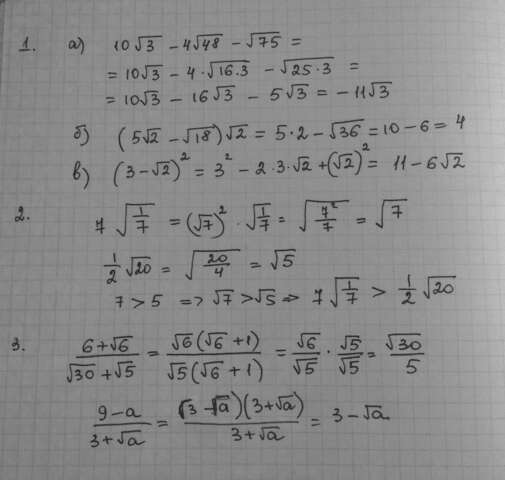 1. а) 10√3 - 4√48 - √75 =
= 10√3 - 4·√16·3 - √25·3 =
= 10√3 - 16√3 - 5√3 = -11√3
б) (5√2 - √18)√2 = 5·2 - √36 = 10 - 6 = 4
в) (3 - √2)² = 3² - 2·3·√2 + (√2)² = 11 - 6√2
2. 7√(1/7) = (√7)² · √(1/7) = √(7²/7) = √7
1/2 √20 = √(20/4) = √5
7 > 5 => √7 > √5 => 7√(1/7) > 1/2 √20
3. (6+√6)/(√30+√5) = √6(√6+1)/√5(√6+1) = √6/√5 · √5/√5 = √30/5
(9-a)/(3+√a) = (3-√a)(3+√a)/(3+√a) = 3-√a